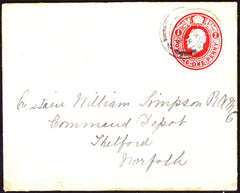 ONE PENNY
Captain William Simpson R.A.M.C
Command Depot
Thetford
Norfolk